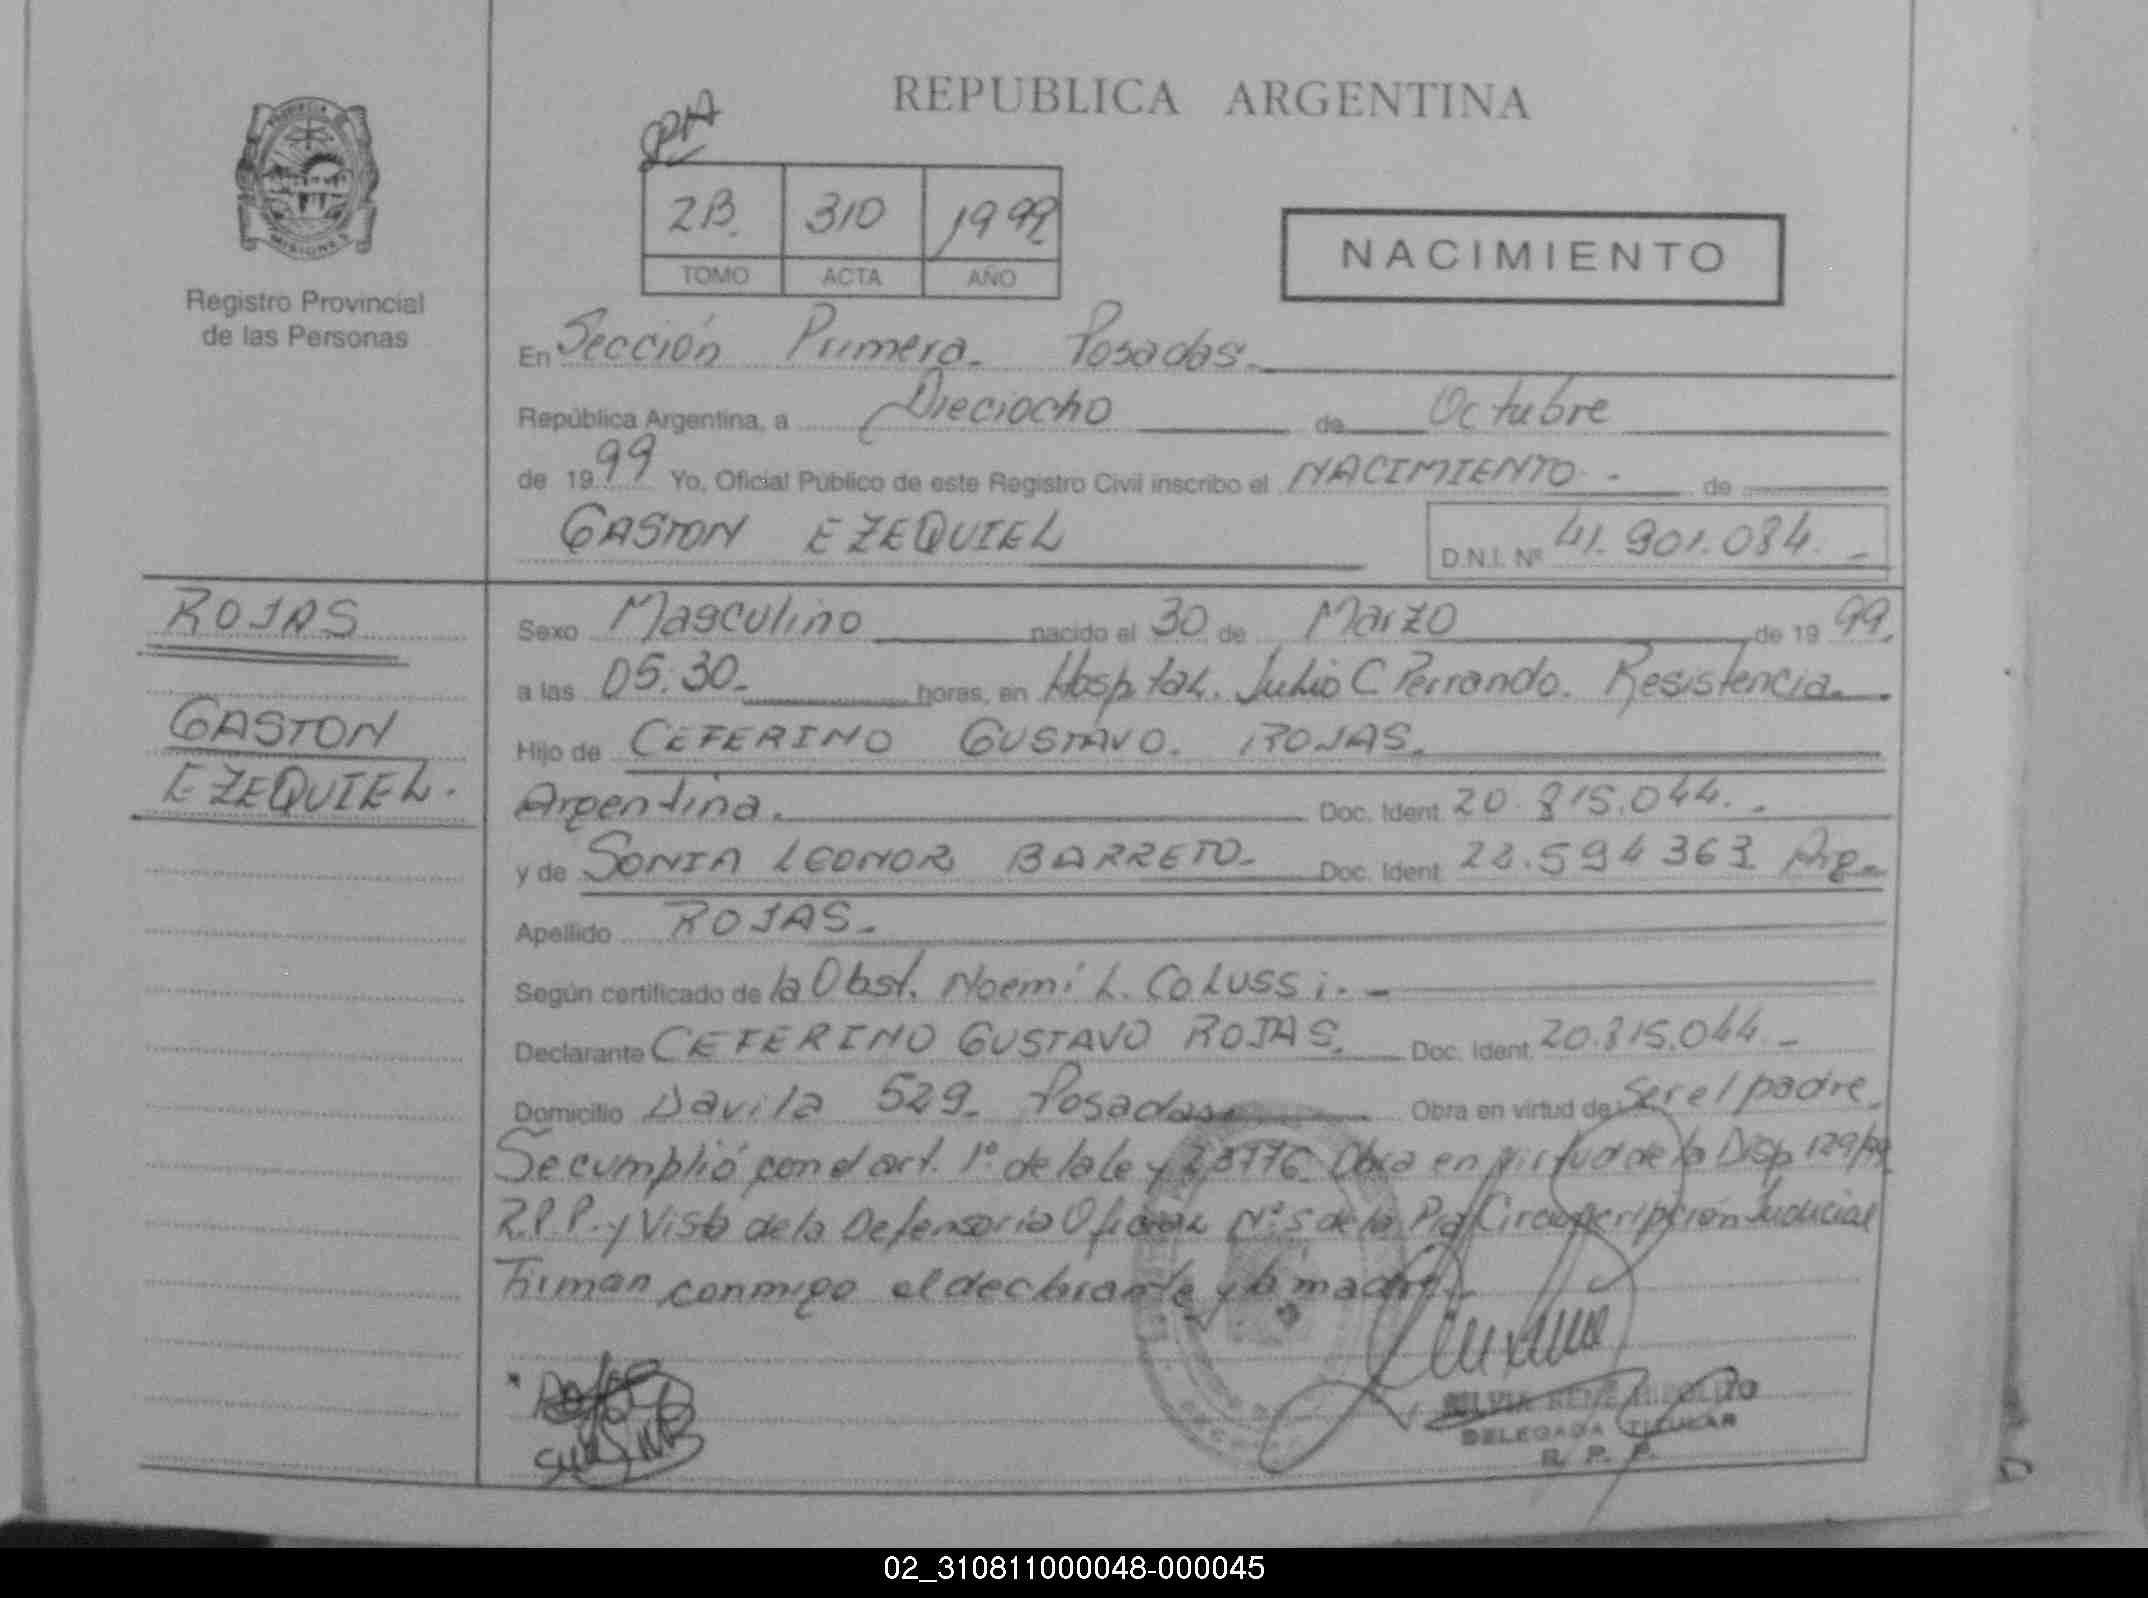 REPUBLICA ARGENTINA
2B. 310 1999
TOMO ACTA AÑO
NACIMIENTO
MISIONES
Registro Provincial
de las Personas
En Sección Primera. Posadas.
República Argentina, a Dieciocho de Octubre
de 19 99 Yo, Oficial Público de este Registro Civil inscribo el NACIMIENTO - de
GASTON EZEQUIEL D.N.I. Nº 41.901.034.
ROJAS
GASTON
EZEQUIEL.
Sexo Masculino nacido el 30 de Marzo de 19 99.
a las 05:30 horas, en Hospital. Julio C Perrando. Resistencia.
Hijo de CEFERINO GUSTAVO. ROJAS.
Argentina. Doc. Ident. 20.815.044.
y de SONIA LEONOR BARRETO- Doc. Ident. 594 363 Arg.
Apellido ROJAS.
Según certificado de la Obst. Noemi L. Colussi.
Declarante CEFERINO GUSTAVO ROJAS. Doc. Ident. 20.815.044.
Domicilio Davila 529. Posadas Obra en virtud de Ser el padre.
Se cumplió con el art. 1º de la Ley Obra en virtud de la Disp 129/99
R.P.P. y Vista de la Defensoria Oficial Nº 5 de la Circunscripción Judicial
Firman conmigo el declarante y la madre.
DELEGADA TITULAR
R. P. P.
02_310811000048-000045